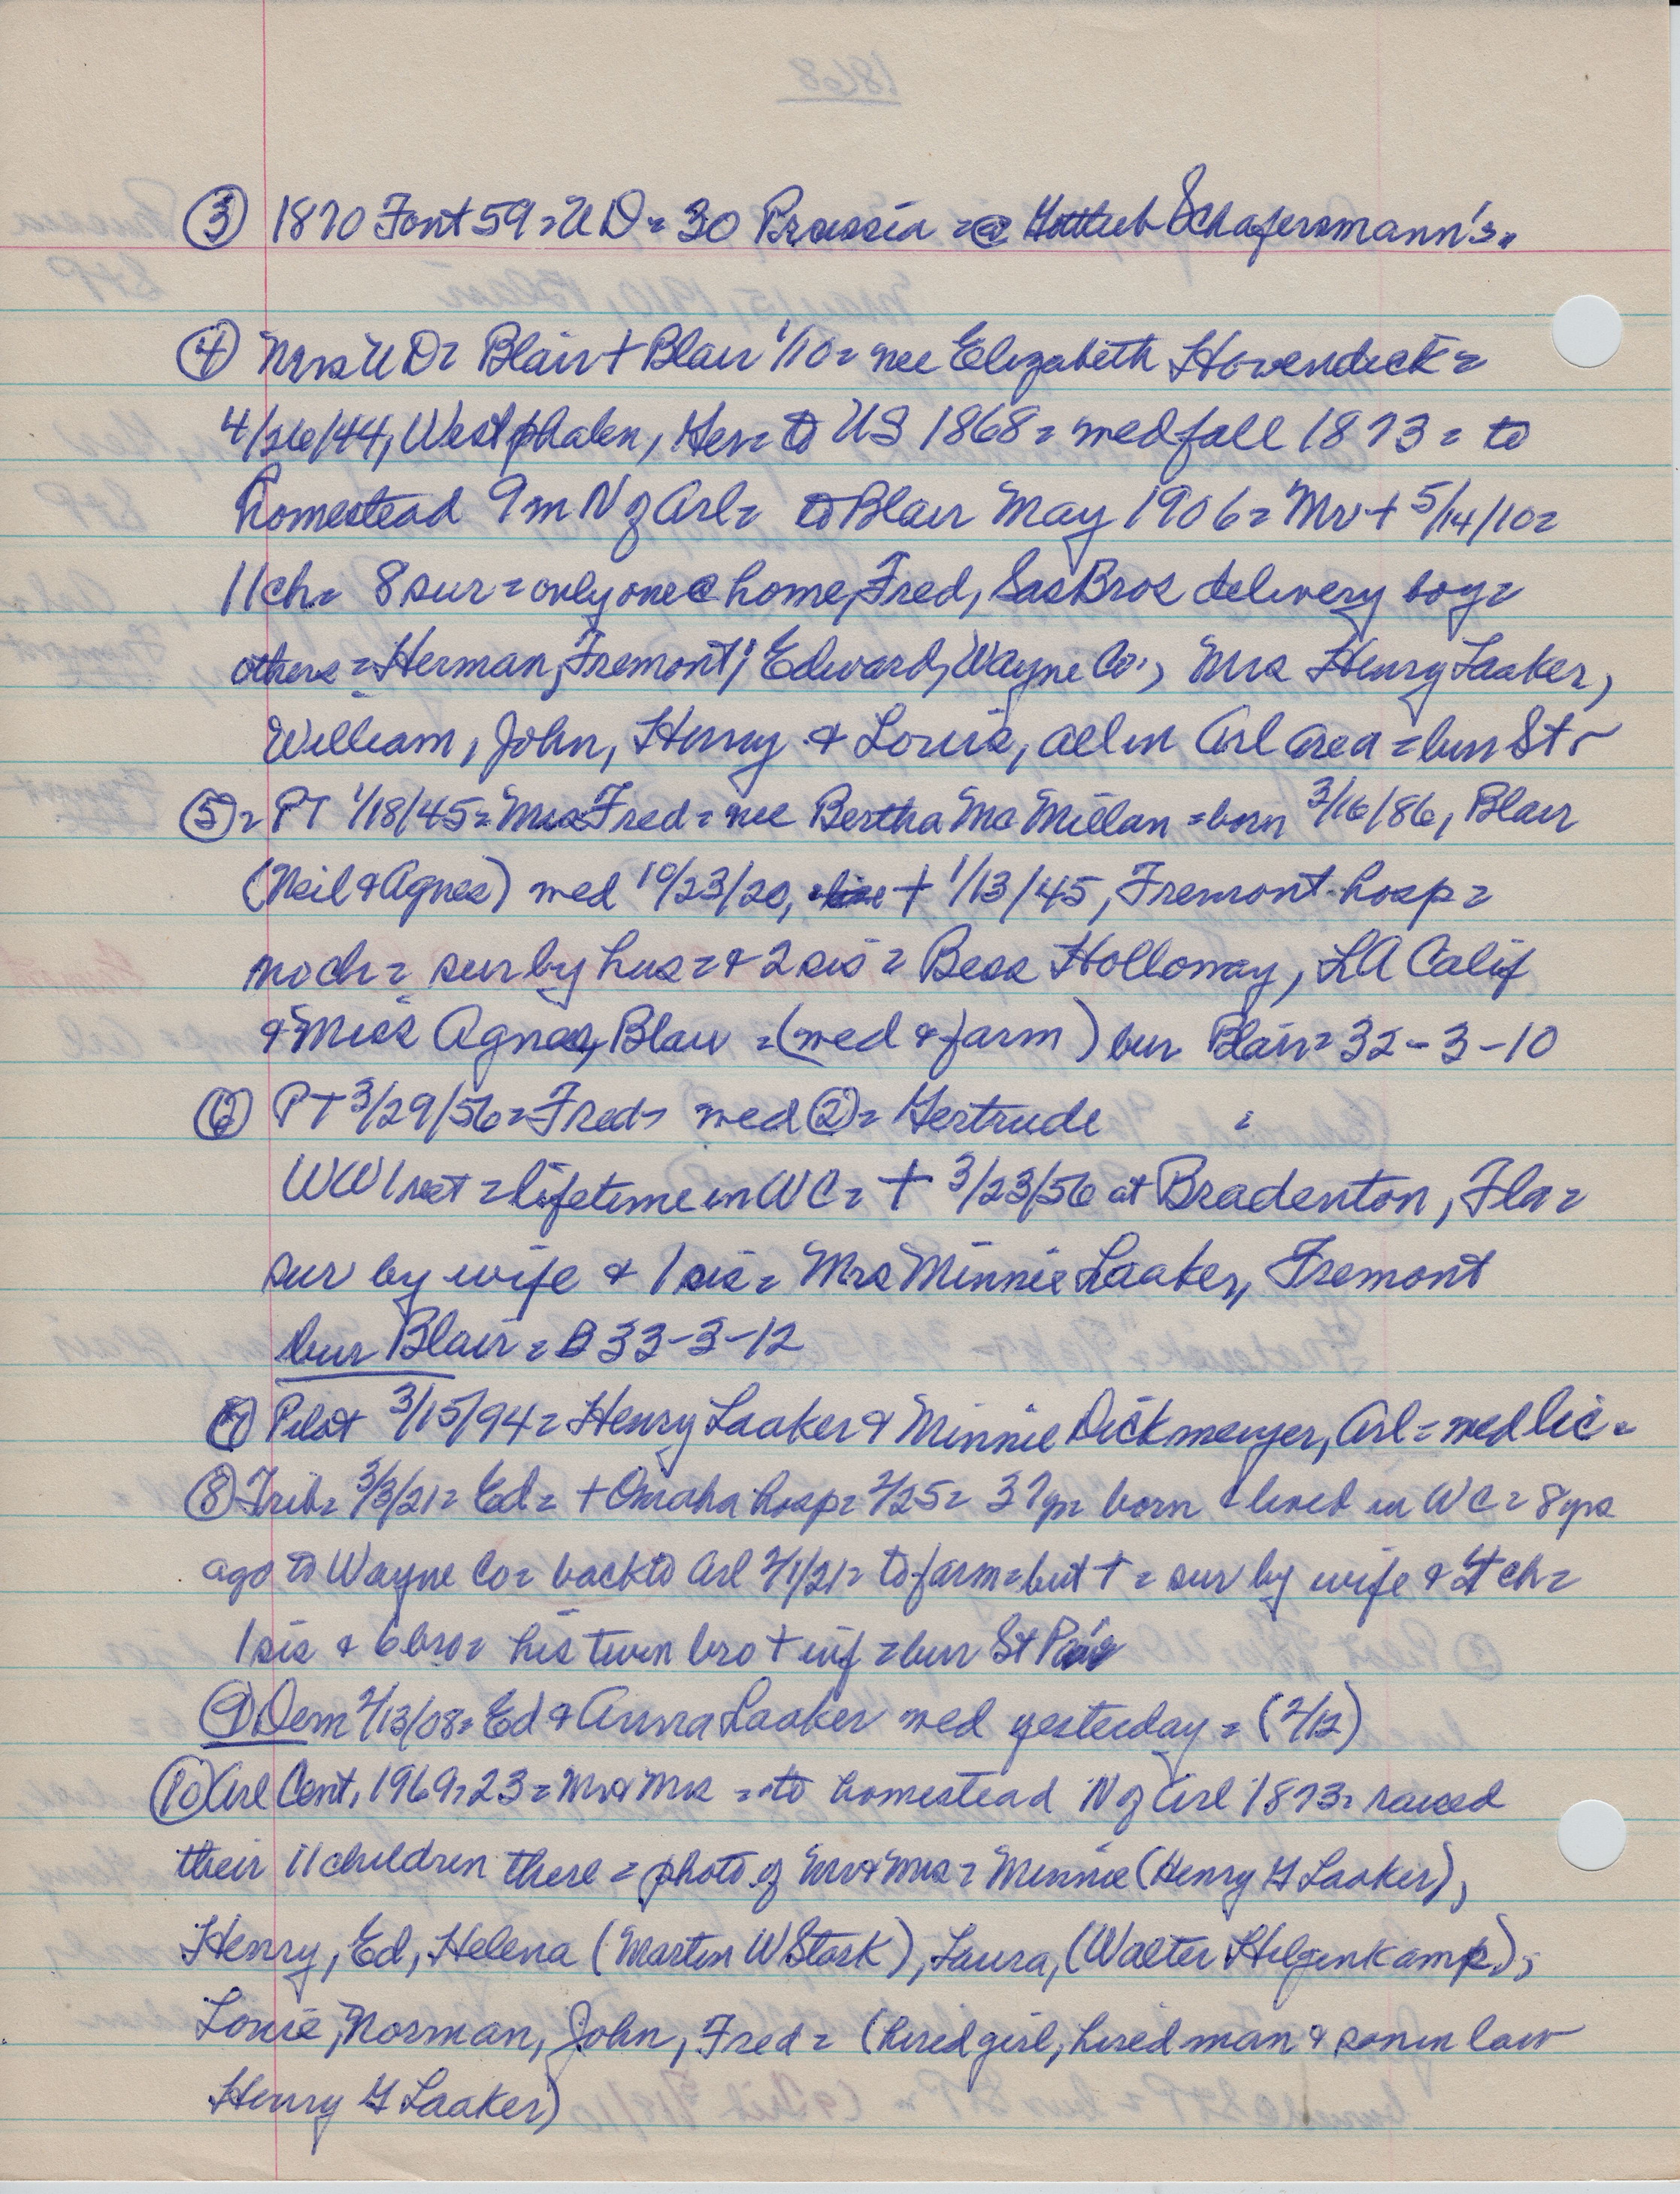 ③ 1870 Font 59 = W D = 30 Prussia = @ Gottlieb Schafersmann's =
④ Mrs W D = Blair + Blair 1/10 = nee Elizabeth Hovendick =
4/26/44, Westphalen, Ger = to US 1868 = med fall 1873 = to
homestead 9 m N of Arl = to Blair May 1906 = Mr + 5/14/10 =
11 ch = 8 sur = only one @ home, Fred, Sas Bros delivery boy =
others = Herman, Fremont; Edward, Wayne Co; Mrs Henry Laaker,
William, John, Henry & Louis, all in Arl area = bur St
⑤ = PT 1/18/45 = Mrs Fred = nee Bertha McMillan = born 3/16/86, Blair
(Neil & Agnes) med 10/23/20, + 1/13/45, Fremont hosp =
no ch = sur by hus = & 2 sis = Bess Holloway, LA Calif
& Miss Agnes, Blair = (med & farm) bur Blair = 32-3-10
⑥ PT 3/29/56 = Fred = med ② = Gertrude =
WW1 vet = lifetime in WC = + 3/23/56 at Bradenton, Fla =
sur by wife & 1 sis = Mrs Minnie Laaker, Fremont
bur Blair = B 33-3-12
⑦ Pilot 3/15/94 = Henry Laaker & Minnie Dickmeyer, Arl = med lic =
⑧ Trib = 3/3/21 = Ed = + Omaha hosp = 2/25 = 37 yr = born & lived in WC = 8 yrs
ago to Wayne Co = back to Arl 2/1/21 = to farm = but + = sur by wife & 4 ch =
1 sis & 6 bro = his twin bro + inf = bur St
⑨ Dem 2/13/08 = Ed & Anna Laaker med yesterday = (2/12)
⑩ Arl Cent, 1969, 23 = Mr & Mrs = to homestead N of Arl 1873 = raised
their 11 children there = photo of Mr & Mrs = Minnie (Henry G Laaker),
Henry, Ed, Helena (Martin W Stork), Laura, (Walter Hilgenkamp),
Louie, Norman, John, Fred = (hired girl, hired man & son in law
Henry G Laaker)